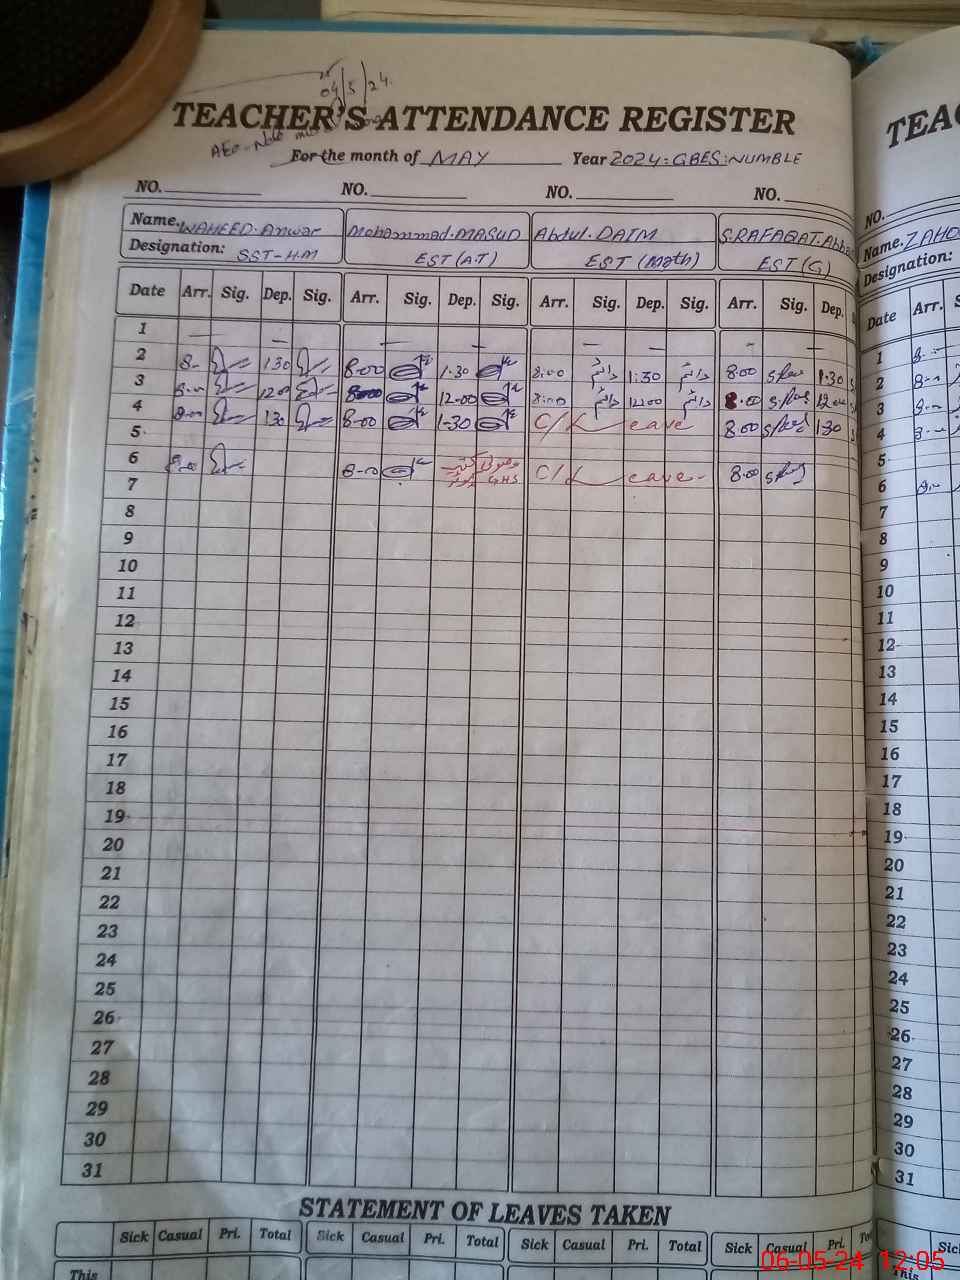 04/5/24.
TEACHER'S ATTENDANCE REGISTER
For the month of MAY Year 2024: GBES: NUMBLE
NO. NO. NO. NO.
Name. WAHEED. Anwar Mohammad. MASUD Abdul. DAIM S.RAFAQAT. Abba
Designation: SST-H.M EST (A.T) EST (Math) EST (G)
Date Arr. Sig. Dep. Sig. Arr. Sig. Dep. Sig. Arr. Sig. Dep. Sig. Arr. Sig. Dep.
1 — — — — — — —
2 8- 130 8-00 1-30 8:00 دائم 1:30 دائم 8.00 1.30
3 8-00 1200 12-00 8:00 دائم 1200 دائم 8.00 1200
4 8-00 130 8-00 1-30 C/Leave 800 130
5
6 8-00 8-00 GHS C/Leave- 8.00
7
8
9
10
11
12
13
14
15
16
17
18
19
20
21
22
23
24
25
26
27
28
29
30
31
STATEMENT OF LEAVES TAKEN
Sick Casual Pri. Total Sick Casual Pri. Total Sick Casual Pri. Total Sick Casual Pri.
This
TEAC
NO.
Name. ZAHO
Designation:
Date Arr.
1
2
3
4
5
6
7
8
9
10
11
12
13
14
15
16
17
18
19
20
21
22
23
24
25
26
27
28
29
30
31
This
06-05-24 12:05